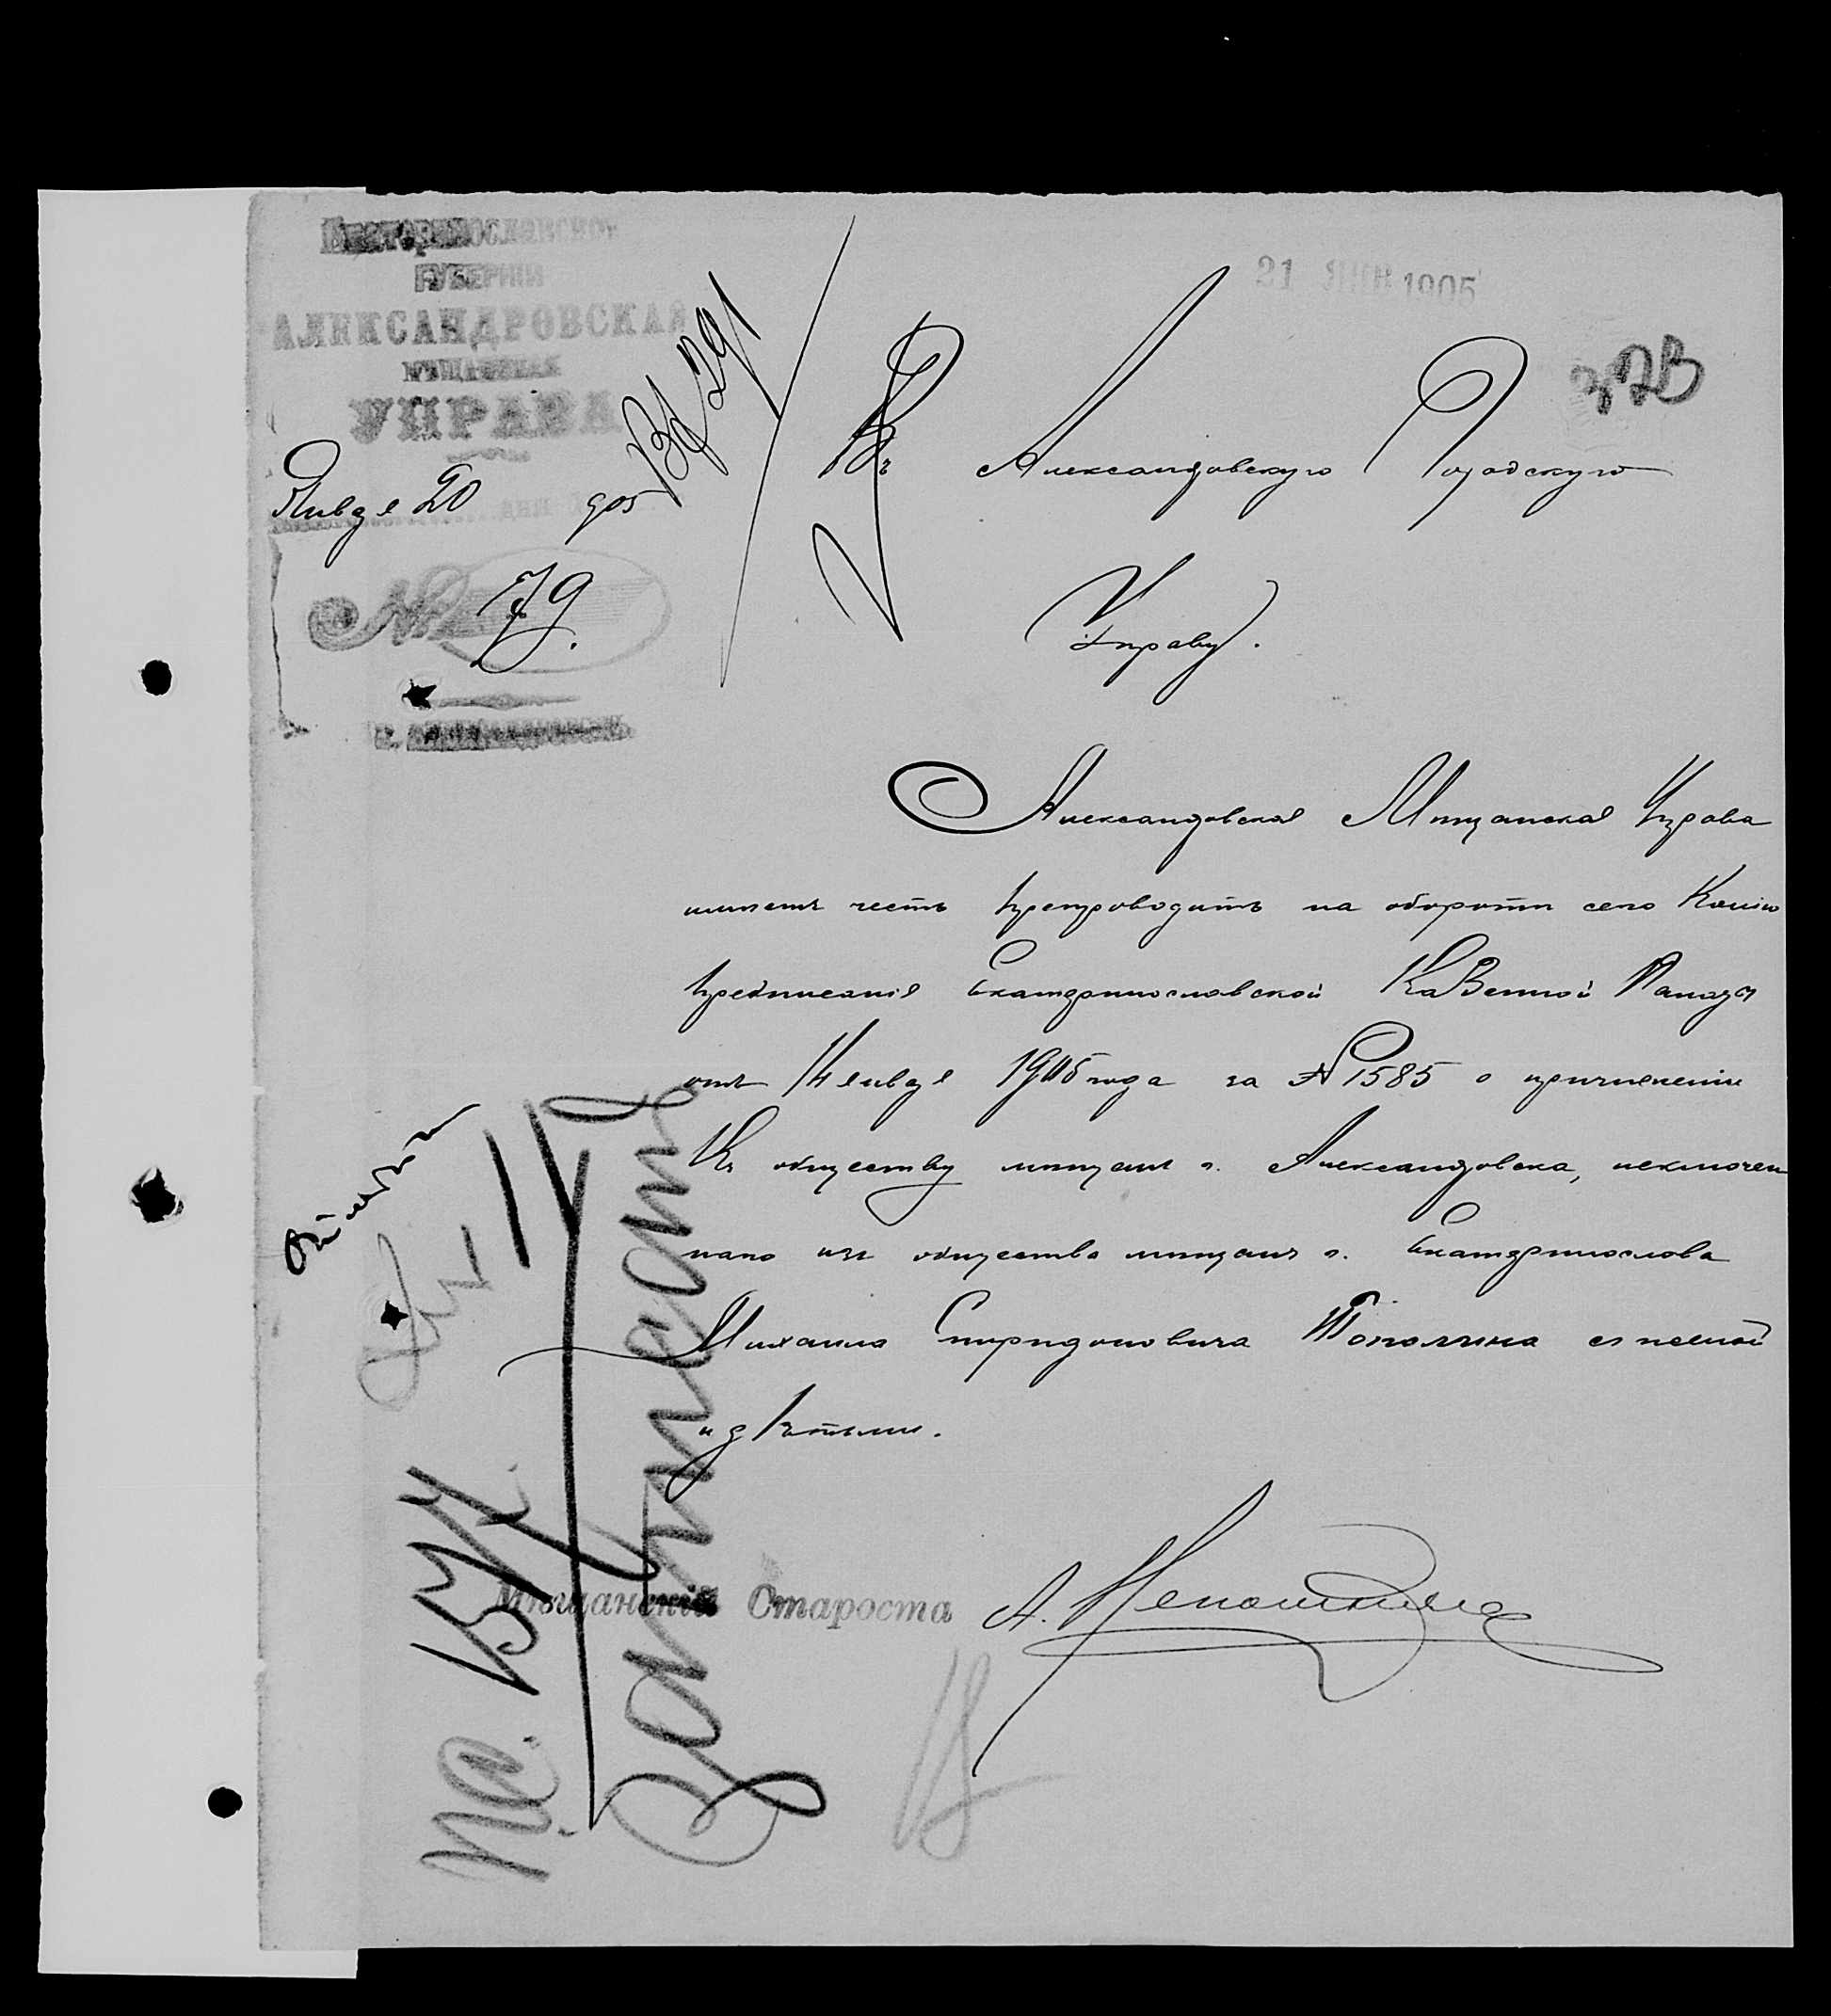 Екатеринославской
ГУБЕРНІИ
АЛЕКСАНДРОВСКАЯ
МѢЩАНСКАЯ
УПРАВА
Января 20 дня 905
№ 79.
г. Александровскъ
21 ЯНВ 1905
Вх 291
Въ Александровскую Городскую
Управу.
Александровская Мѣщанская Управа
имѣетъ честь препроводить на оборотѣ сего Копію
предписанія Екатеринославской Казенной Палаты
отъ 14 января 1905 года за № 1585 о причисленіи
Къ обществу мѣщанъ г. Александровска, исключен
наго изъ общества мѣщанъ г. Екатеринослава
Михаила Спиридоновича Тополина съ женой
и дѣтьми.
Мѣщанскій Староста А.